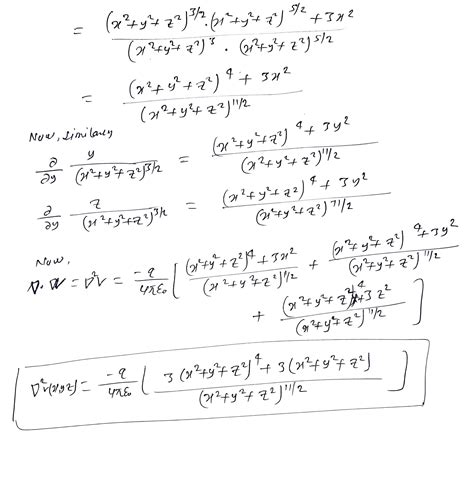 = \frac{(x²+y²+z²)^{3/2} \cdot (x²+y²+z²)^{5/2} + 3x²}{(x²+y²+z²)^3 \cdot (x²+y²+z²)^{5/2}}
= \frac{(x²+y²+z²)^4 + 3x²}{(x²+y²+z²)^{11/2}}
Now, similarly
\frac{∂}{∂y} \frac{y}{(x²+y²+z²)^{3/2}} = \frac{(x²+y²+z²)^4 + 3y²}{(x²+y²+z²)^{11/2}}
\frac{∂}{∂y} \frac{z}{(x²+y²+z²)^{3/2}} = \frac{(x²+y²+z²)^4 + 3y²}{(x²+y²+z²)^{11/2}}
Now,
∇·∇V = ∇²V = \frac{-q}{4πε₀} [ \frac{(x²+y²+z²)^4 + 3x²}{(x²+y²+z²)^{11/2}} + \frac{(x²+y²+z²)^4 + 3y²}{(x²+y²+z²)^{11/2}}
+ \frac{(x²+y²+z²)^4 + 3z²}{(x²+y²+z²)^{11/2}} ]
∇²V(xyz) = \frac{-q}{4πε₀} [ \frac{3(x²+y²+z²)^4 + 3(x²+y²+z²)}{(x²+y²+z²)^{11/2}} ]